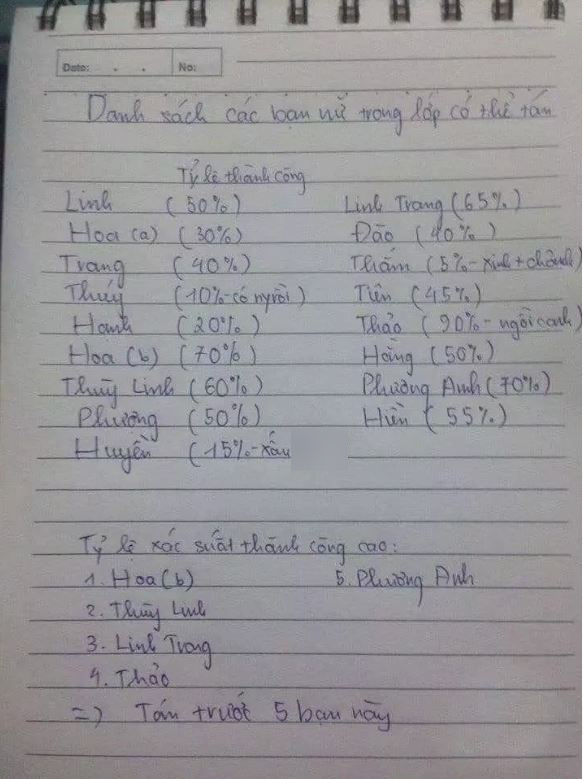 Date: . . No:
Danh sách các bạn nữ trong lớp có thể tán
Tỷ lệ thành công
Linh (50%) Linh Trang (65%)
Hoa (a) (30%) Đào (40%)
Trang (40%) Thắm (5%-xinh+chảnh)
Thúy (10%-có ny rồi) Tiên (45%)
Hạnh (20%) Thảo (90%-ngồi cạnh)
Hoa (b) (70%) Hằng (50%)
Thùy Linh (60%) Phương Anh (70%)
Phượng (50%) Hiền (55%)
Huyền (15%-xấu
Tỷ lệ xác suất thành công cao:
1. Hoa (b) 5. Phương Anh
2. Thùy Linh
3. Linh Trang
4. Thảo
=> Tán trước 5 bạn này